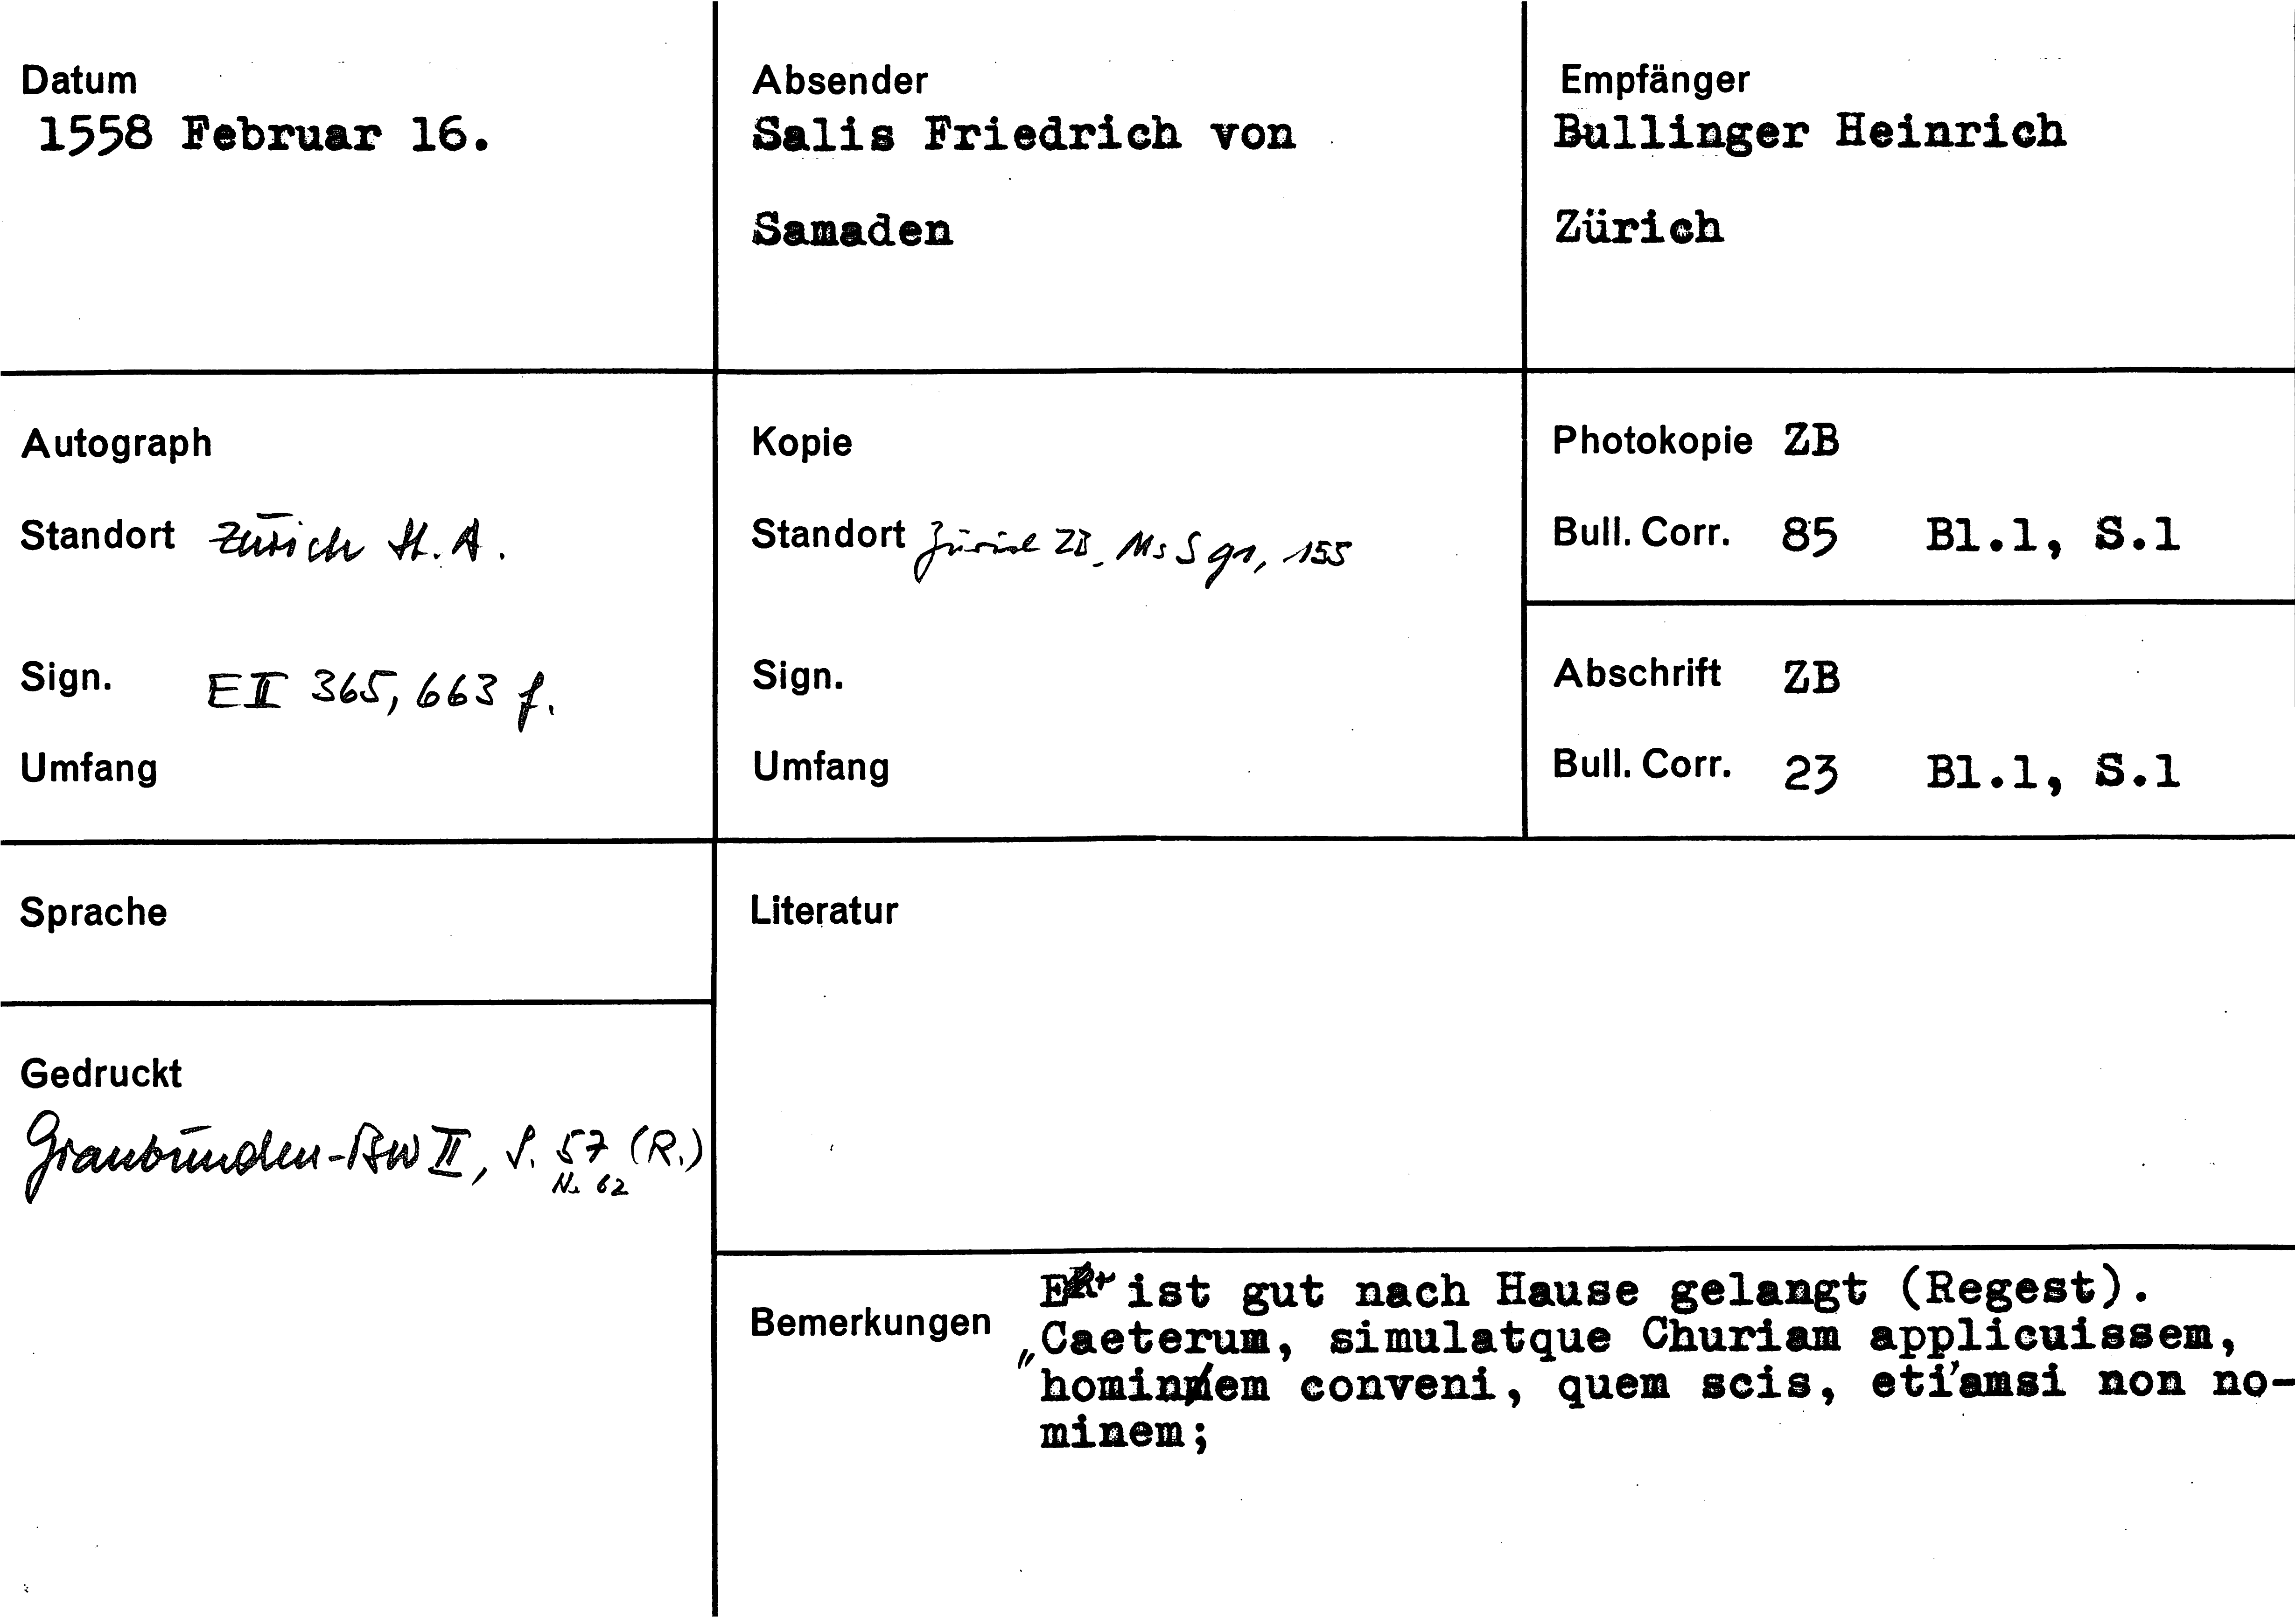 Datum
1558 Februar 16.
Absender
Salis Friedrich von
Samaden
Empfänger
Bullinger Heinrich
Zürich
Autograph
Standort Zürich St. A.
Sign. E II 365, 663 f.
Umfang
Kopie
Standort Zürich ZB, Ms S 91, 155
Sign.
Umfang
Photokopie ZB
Bull. Corr. 85 Bl.1, S.1
Abschrift ZB
Bull. Corr. 23 Bl.1, S.1
Sprache
Gedruckt
Graubünden-BW II, S. 57 (R.)
Nr. 62
Literatur
Bemerkungen
Er ist gut nach Hause gelangt (Regest).
„Caeterum, simulatque Churiam applicuissem,
hominem conveni, quem scis, etiamsi non no-
minem;